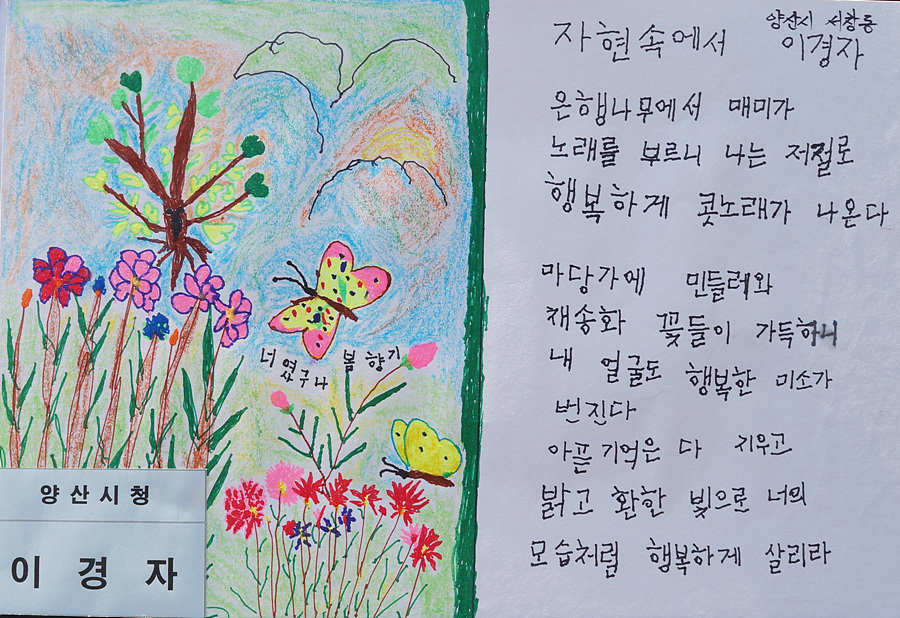 너였구나 봄향기
양산시청
이 경 자
자현속에서
양산시 서창동
이경자
은행나무에서 매미가
노래를 부르니 나는 저절로
행복하게 콧노래가 나온다
마당가에 민들레와
채송화 꽃들이 가득하니
내 얼굴도 행복한 미소가
번진다
아픈 기억은 다 지우고
밝고 환한 빛으로 너의
모습처럼 행복하게 살리라